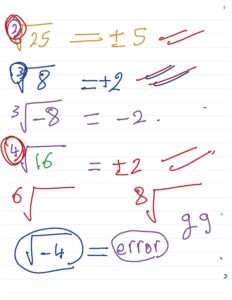 ²√25 = ±5
³√8 = +2
³√-8 = -2.
⁴√16 = ±2
⁶√ ⁸√
gg
√-4 = error